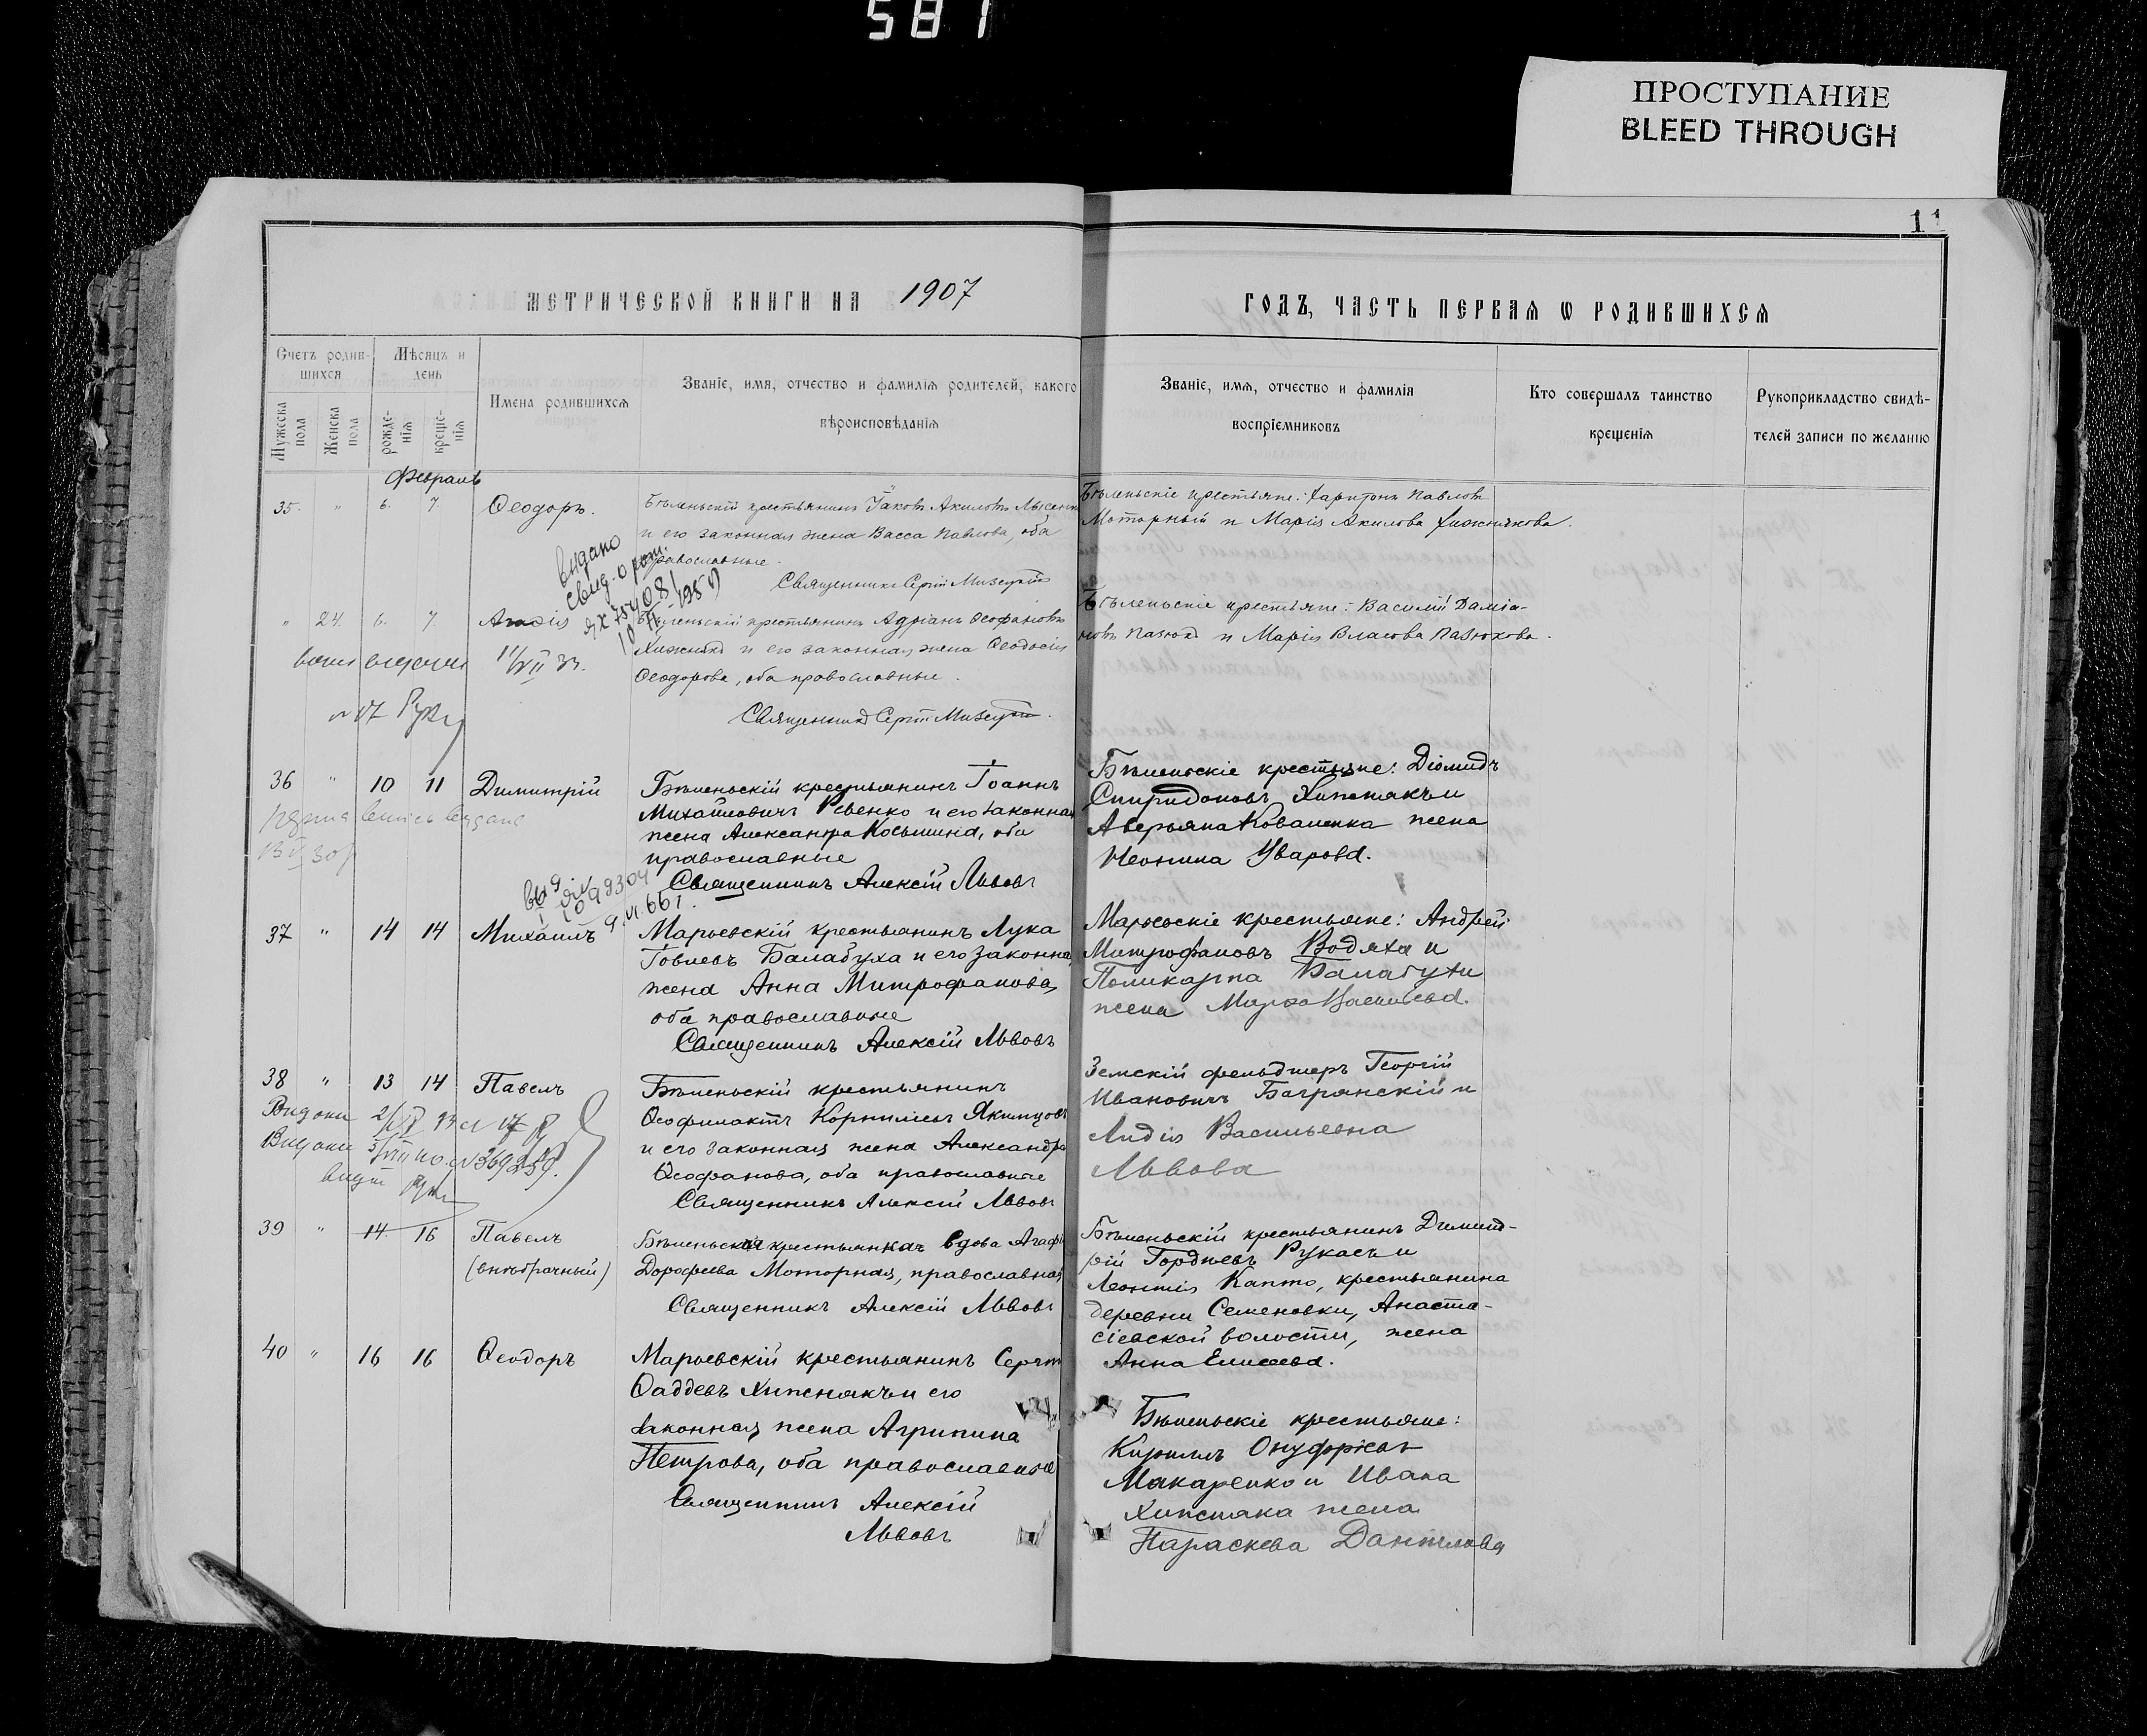 581
ПРОСТУПАНИЕ
BLEED THROUGH
11
МЕТРИЧЕСКОЙ КНИГИ НА 1907
ГОДЪ, ЧАСТЬ ПЕРВАЯ Ѡ РОДИВШИХСЯ
Счетъ родив-
шихся
Мѣсяцъ и
день
Мужеска
пола
Женска
пола
рожде-
нія
креще-
нія
Имена родившихся
Званіе, имя, отчество и фамилія родителей, какого
вѣроисповѣданія
Званіе, имя, отчество и фамилія
воспріемниковъ
Кто совершалъ таинство
крещенія
Рукоприкладство свидѣ-
телей записи по желанію
Февраль
35. " 6. 7. Ѳеодоръ.
Бѣленьскій крестьянинъ Іаковъ Акиловъ
и его законная жена Васса Павлова, оба
православные.
Священникъ Сергій Мизецкій
Бѣленьскіе крестьяне: Харитонъ Павловъ
Моторный и Марія Акилова Хижнякова.
выдано
свид. о рож.
" 24. 6. 7.
Бѣленьскій крестьянинъ Адріанъ Ѳеофановъ
Хижнякъ и его законная жена Ѳеодосія
Ѳеодорова, оба православные.
Священникъ Сергій Мизецкій.
Бѣленьскіе крестьяне: Василій Даміа-
новъ Пазюкъ и Марія Власова Пазюкова.
36 " 10 11 Димитрій
Бѣленьскій крестьянинъ Іоаннъ
Михайловичъ Ревенко и его законная
жена Александра Косьмина, оба
православные
Священникъ Алексій Львовъ
Бѣленьскіе крестьяне: Діомидъ
Спиридоновъ Хижнякъ и
Аверьяна Коваленка жена
Неонила Уварова.
37 " 14 14 Михаилъ
Марьевскій крестьянинъ Лука
Іовлевъ Балабуха и его законная
жена Анна Митрофанова,
оба православные
Священникъ Алексій Львовъ
Марьевскіе крестьяне: Андрей
Митрофановъ Водяха и
Поликарпа Балабухи
жена
38 " 13 14 Павелъ
Бѣленьскій крестьянинъ
Ѳеофилактъ Корниліевъ Якимцовъ
и его законная жена Александра
Ѳеофанова, оба православные
Священникъ Алексій Львовъ
Земскій фельдшеръ Георгій
Ивановичъ Багрянскій и
Лидія Васильевна
Львова
39 " 14 16 Павелъ
(внѣбрачный)
Бѣленьская крестьянка вдова Агафія
Дорофеева Моторная, православная
Священникъ Алексій Львовъ
Бѣленьскій крестьянинъ Димит-
рій Гордіевъ Рукась и
Леонтія Капто, крестьянина
деревни Семеновки, Анаста-
сіевской волости, жена
Анна Елисеева.
40 " 16 16 Ѳеодоръ
Марьевскій крестьянинъ Сергій
Ѳаддевъ Хижнякъ и его
законная жена Агрипина
Петрова, оба православные
Священникъ Алексій
Львовъ
Бѣленьскіе крестьяне:
Кириллъ Онуфріевъ
Макаренко и Ивана
Хижняка жена
Параскева Даніилова